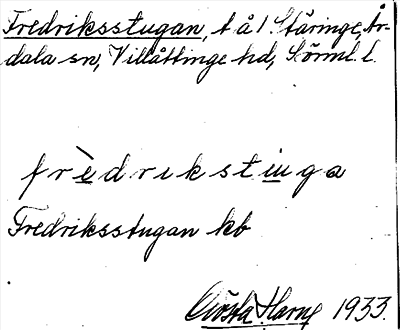 Fredriksstugan, t å 1 Ståringe, År-
dala sn, Villåttinge hd, Sörml. l.
frèdrikstuga
Fredriksstugan kb
Gösta Harne 1933.